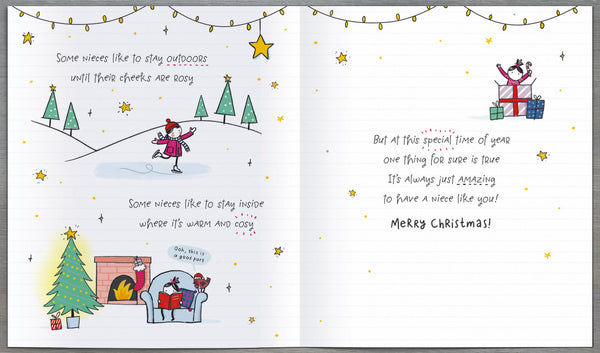 Some nieces like to stay outdoors
until their cheeks are rosy
Some nieces like to stay inside
where it's warm and cosy
Ooh, this is
a good part
But at this special time of year
one thing for sure is true
It's always just amazing
to have a niece like you!
Merry Christmas!